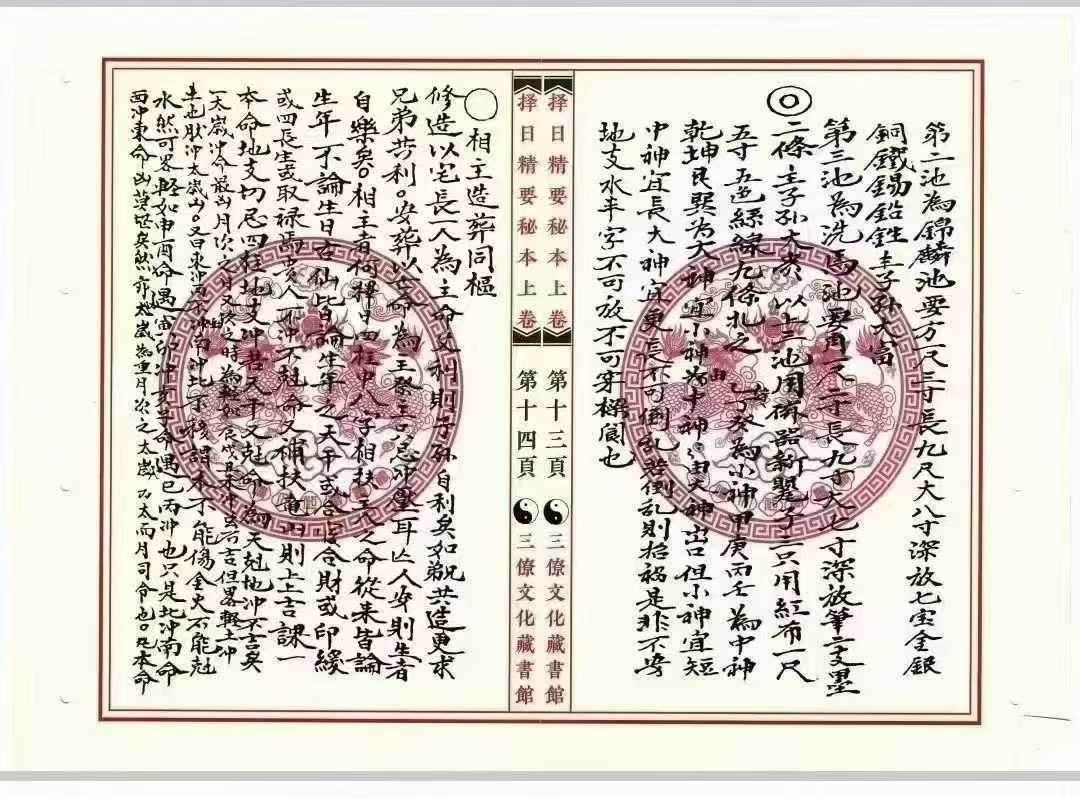 第二池為錦麟池要方一尺三寸長九尺大八寸深放七宝金銀
銅鐵錫鉛鉎主子孫大富
第三池為洗馬池要角尺二寸長九寸大七寸深放筆二支墨
二條主子孫大貴以上三池用
器新
子三只用紅布一尺
五寸五色絲線九條扎之
丁癸為小神甲庚丙壬為中神
乾坤艮巽為大神宜小神為中神
大神出但小神宜短
中神宜長大神宜更長不可倒乱若倒乱則招禍是非不旁
地支水丰字不可放不可穿
也
择日精要秘本上卷
第十三頁
三僚文化藏書館
择日精要秘本上卷
第十四頁
三僚文化藏書館
相主造葬同樞
修造以宅長一人為主命
利則子孫自利矣如兄弟共造更求
兄弟共利。安葬以亡命為主祭主只忌冲壓耳亡人安則生者
自樂矣。相主者何擇日四柱中八字相扶主人之命從來皆論
生年不論生日古仙皆論生年之天干或合官合財或印綬
或四長生或取禄馬貴人不冲不尅命又補扶
則上吉課一
本命地支切忌四柱地支冲若天干又尅命為天尅地冲不吉矣
一太歲冲命最凶月次之日又次之時為輕如辰戌丑未冲
吉但畧輕土冲
土也財冲太歲凶。又曰東
冲南冲北不
不能傷金火不能尅
水然可畧輕如申酉命遇寅卯冲
命遇巳丙冲也只是北冲南命
西冲東命凶
矣然
太歲
月次之太歲
而月司令也。
本命